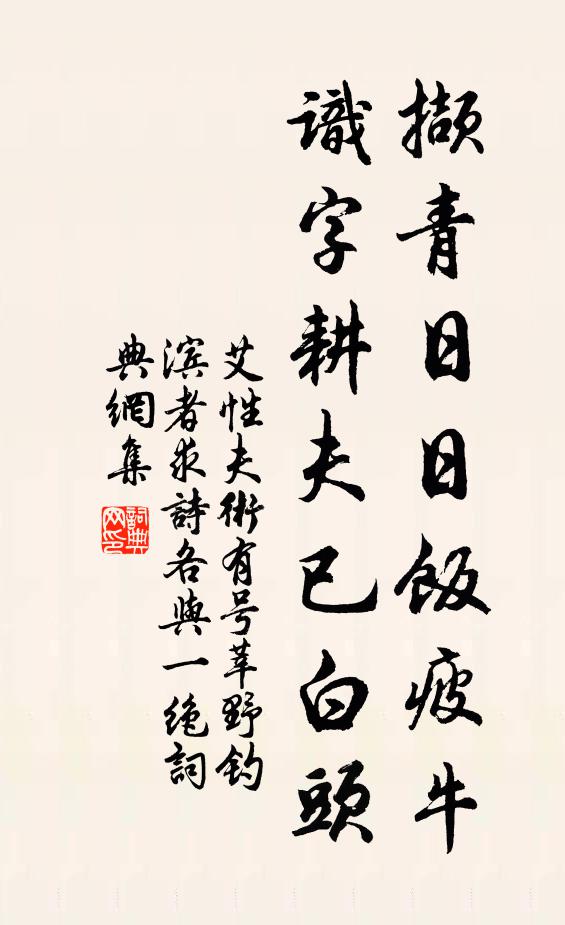 擷青日日飯疲牛
識字耕夫已白頭
艾性夫術有号莘野釣
滨者求詩各與一绝詞
典網集
詞典网印